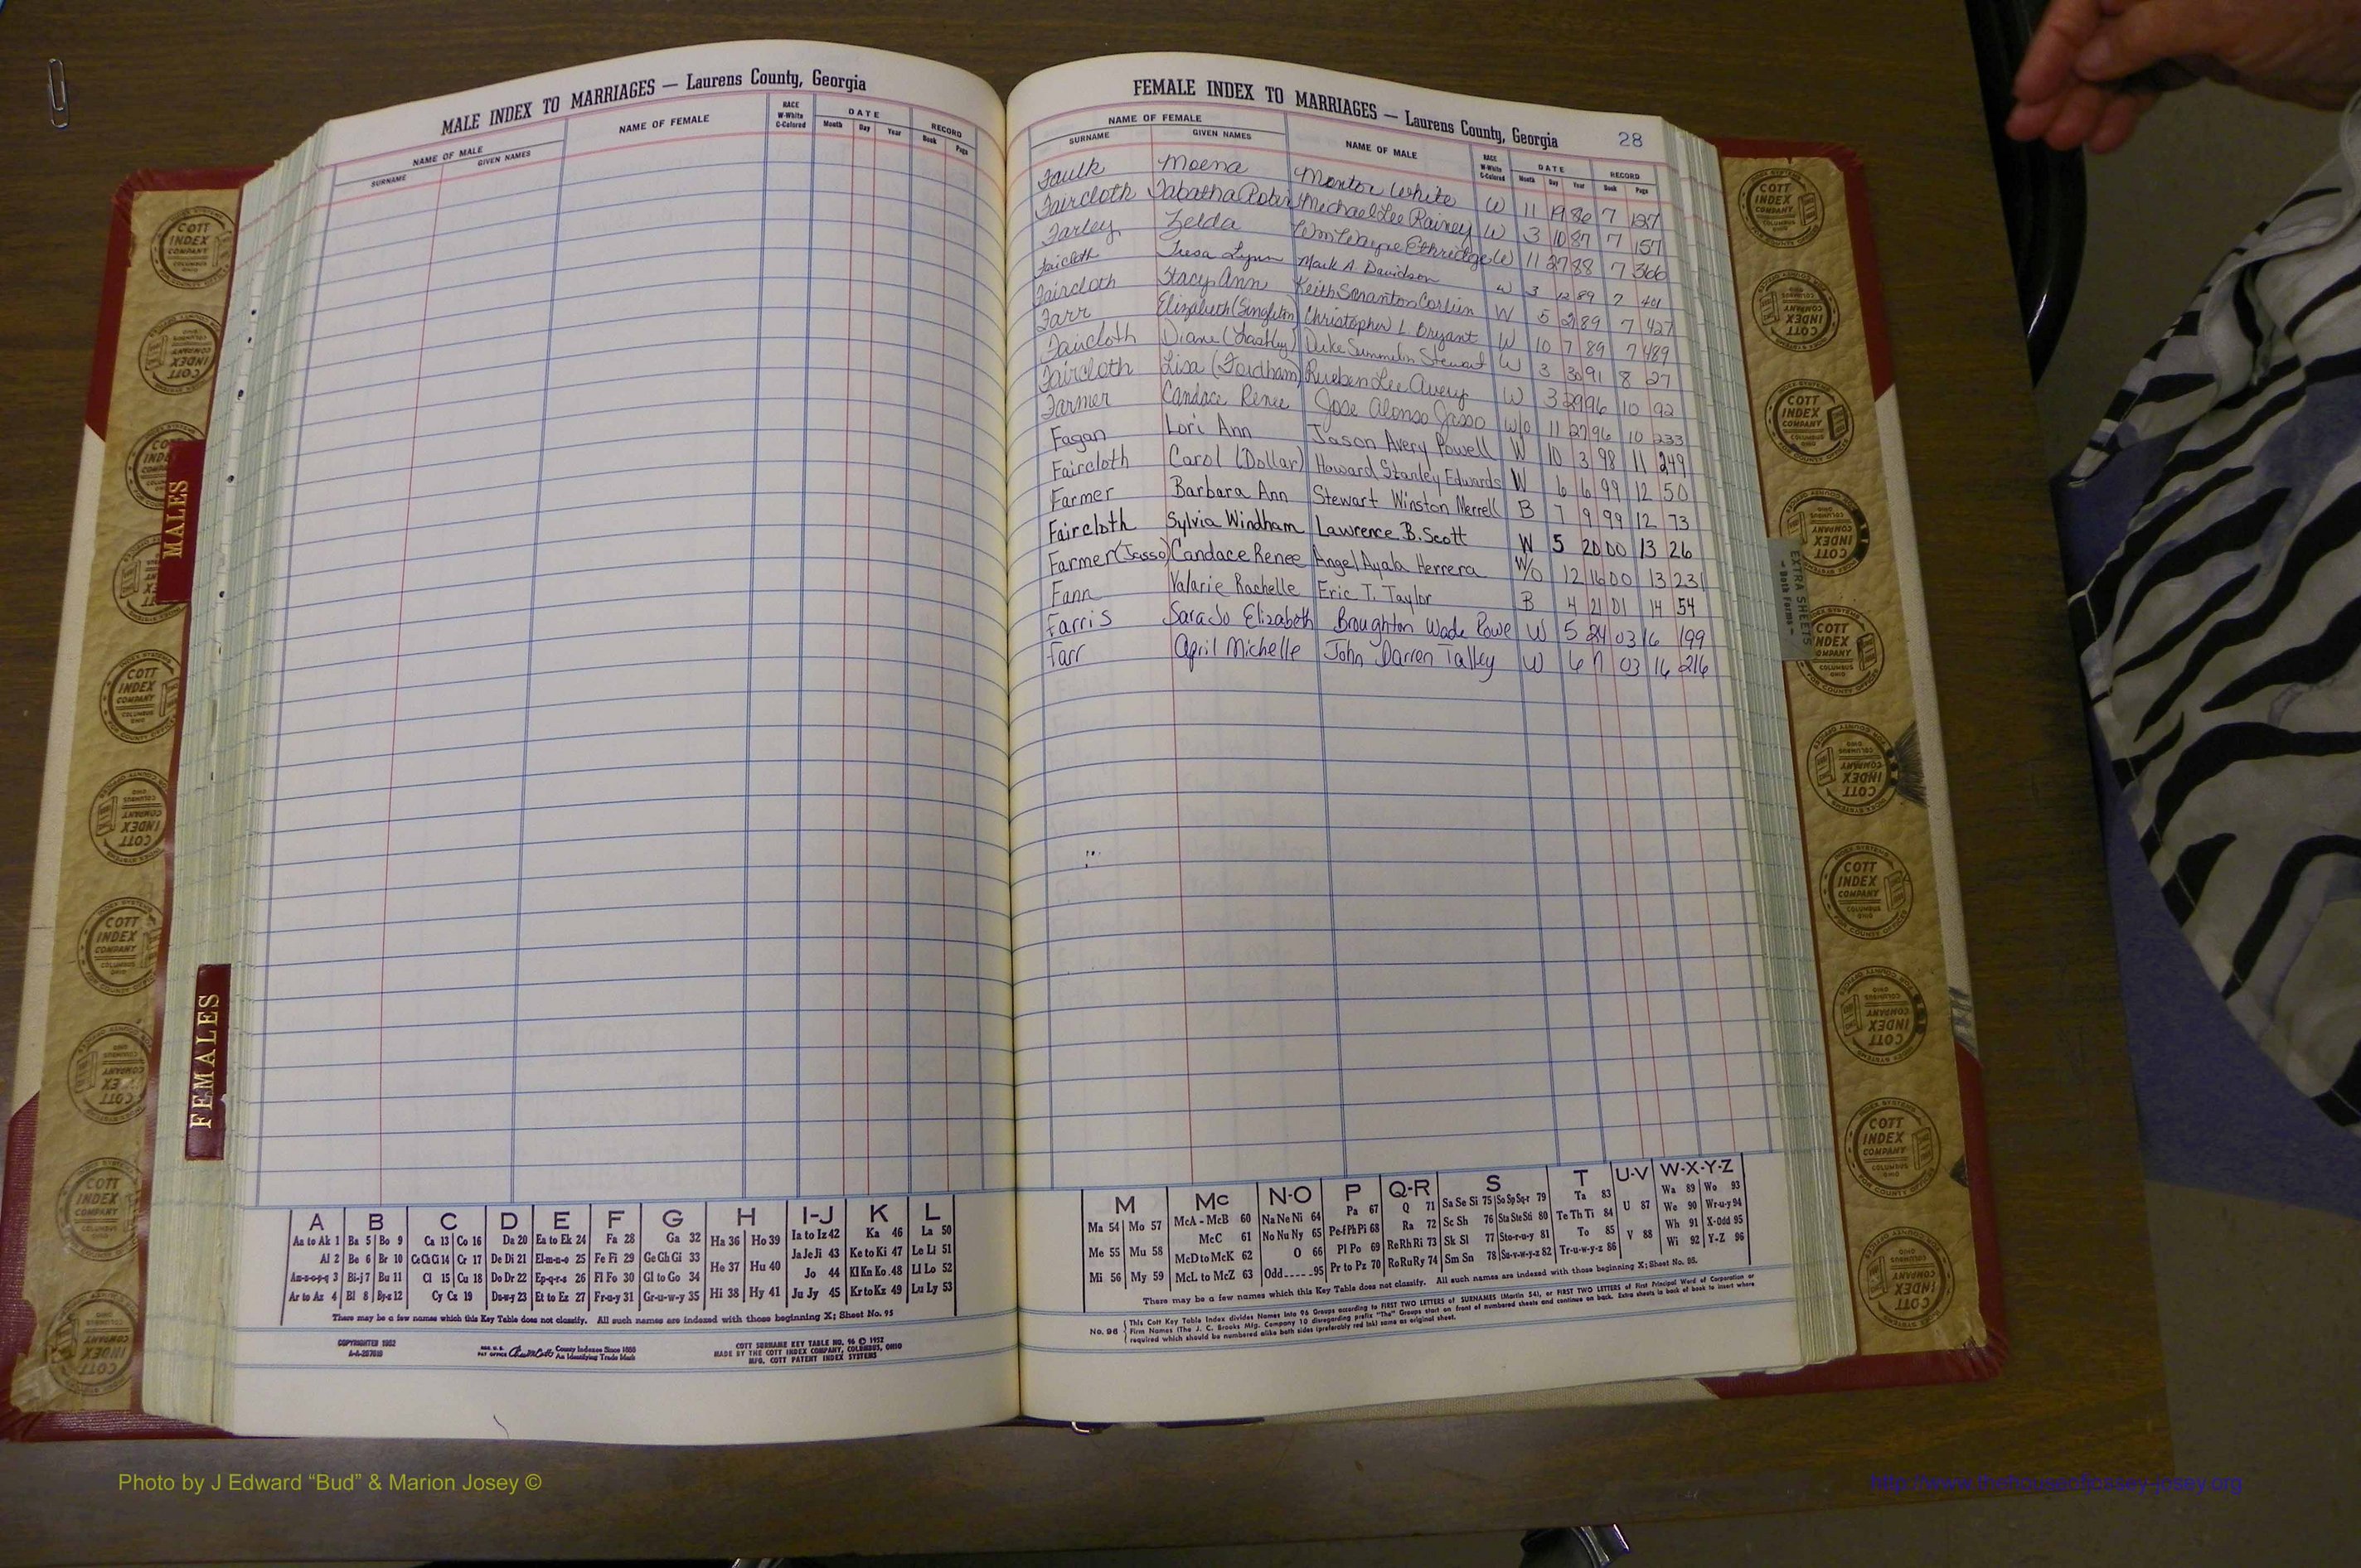 MALE INDEX TO MARRIAGES — Laurens County, Georgia
NAME OF MALE
SURNAME GIVEN NAMES
NAME OF FEMALE
RACE
W-White
C-Colored
DATE
Month Day Year
RECORD
Book Page
FEMALE INDEX TO MARRIAGES — Laurens County, Georgia 28
NAME OF FEMALE
SURNAME GIVEN NAMES
NAME OF MALE
RACE
W-White
C-Colored
DATE
Month Day Year
RECORD
Book Page
Faulk Moena White W 11 19 86 7 127
Faircloth Tabatha Robin Michael Lee Rainey W 3 10 87 7 157
Farley Zelda Wm Wayne Ethridge W 11 27 88 7 366
Faircloth Tresa Lynn Mark A Davidson W 3 12 89 7 401
Faircloth Stacy Ann Keith W 5 2 89 7 427
Farr Elizabeth (Singleton) Christopher L. Bryant W 10 7 89 7 489
Faircloth Diane (Lashley) Duke Stewart W 3 30 91 8 27
Faircloth Lisa (Fordham) Rueben Lee Avery W 3 29 96 10 92
Farmer Candace Renee Jose Alonso Jasso W/O 11 27 96 10 233
Fagan Lori Ann Jason Avery Powell W 10 3 98 11 249
Faircloth Carol (Dollar) Howard Stanley Edwards W 6 6 99 12 50
Farmer Barbara Ann Stewart Winston Merrell B 7 9 99 12 73
Faircloth Sylvia Windham Lawrence B. Scott W 5 20 00 13 26
Farmer (Jasso) Candace Renee Angel Ayala Herrera W/O 12 16 00 13 231
Fann Valarie Rachelle Eric T. Taylor B 4 21 01 14 54
Farris SaraJo Elizabeth Broughton Wade Powe W 5 24 03 16 199
Farr April Michelle John Darren Talley W 6 7 03 16 216
MALES
FEMALES
EXTRA SHEETS
— Both Forms —
COTT
INDEX
COMPANY
COLUMBUS
OHIO
A B C D E F G H I-J K L
Aa to Ak 1 Ba 5 Bo 9 Ca 13 Co 16 Da 20 Ea to Ek 24 Fa 28 Ga 32 Ha 36 Ho 39 Ia to Iz 42 Ka 46 La 50
Al 2 Be 6 Br 10 Ce Ch Ci 14 Cr 17 De Di 21 El-m-n-o 25 Fe Fi 29 Ge Gh Gi 33 He 37 Hu 40 Ja Je Ji 43 Ke to Ki 47 Le Li 51
Am-n-o-p-q 3 Bi-j 7 Bu 11 Cl 15 Cu 18 Do Dr 22 Ep-q-r-s 26 Fl Fo 30 Gl to Go 34 Jo 44 Kl Kn Ko 48 Ll Lo 52
Ar to Az 4 Bl 8 By-z 12 Cy Cz 19 Du-w-y 23 Et to Ez 27 Fr-u-y 31 Gr-u-w-y 35 Hi 38 Hy 41 Ju Jy 45 Kr to Kz 49 Lu Ly 53
There may be a few names which this Key Table does not classify. All such names are indexed with those beginning X; Sheet No. 95
COPYRIGHTED 1952
County Indexes Since 1888
An Identifying Trade Mark
COTT SURNAME KEY TABLE NO. 96 © 1952
MADE BY THE COTT INDEX COMPANY, COLUMBUS, OHIO
MFG. COTT PATENT INDEX SYSTEMS
M Mc N-O P Q-R S T U-V W-X-Y-Z
Ma 54 Mo 57 McA - McB 60 Na Ne Ni 64 Pa 67 Q 71 Sa Se Si 75 So Sp Sq-r 79 Ta 83 U 87 Wa 89 Wo 93
Me 55 Mu 58 McC 61 No Nu Ny 65 Pe-f Ph Pi 68 Ra 72 Sc Sh 76 Sta Ste Sti 80 Te Th Ti 84 We 90 Wr-u-y 94
McD to McK 62 O 66 Pl Po 69 Re Rh Ri 73 Sk Sl 77 Sto-r-u-y 81 To 85 V 88 Wh 91 X-Odd 95
Mi 56 My 59 McL to McZ 63 Odd-----95 Pr to Pz 70 Ro Ru Ry 74 Sm Sn 78 Su-v-w-y-z 82 Tr-u-w-y-z 86 Wi 92 Y-Z 96
There may be a few names which this Key Table does not classify. All such names are indexed with those beginning X; Sheet No. 95.
No. 96 This Cott Key Table Index divides Names into 96 Groups according to FIRST TWO LETTERS of SURNAMES (Martin 54), or FIRST TWO LETTERS of First Principal Word of Corporation or
Firm Names (The J. C. Brooks Mfg. Company 10 disregarding prefix "The" Groups start on front of numbered sheets and continue on back. Extra sheets in back of book to insert where
required which should be numbered alike both sides (preferably red ink) same as original sheet.
Photo by J Edward “Bud” & Marion Josey ©
http://www.thehouseofjossey-josey.org